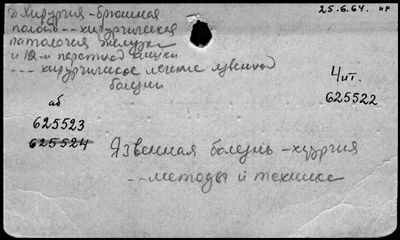 Д Хирургия - брюшная
полость -- хирургическая
патология желудка
и 12-и перстной кишки
--- хирургическое лечение язвенной
болезни
25.6.64. нр
4 чит.
625522
аб
625523
625524
Язвенная болезнь - хирургия
-- методы и техника